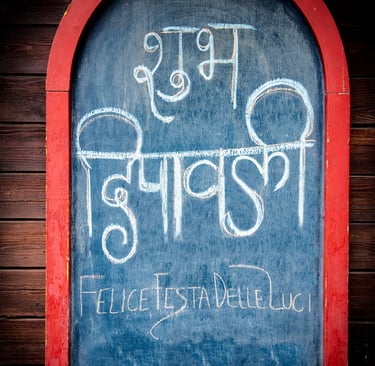 शुभ
दिपावळी
FELICE FESTA DELLE LUCI